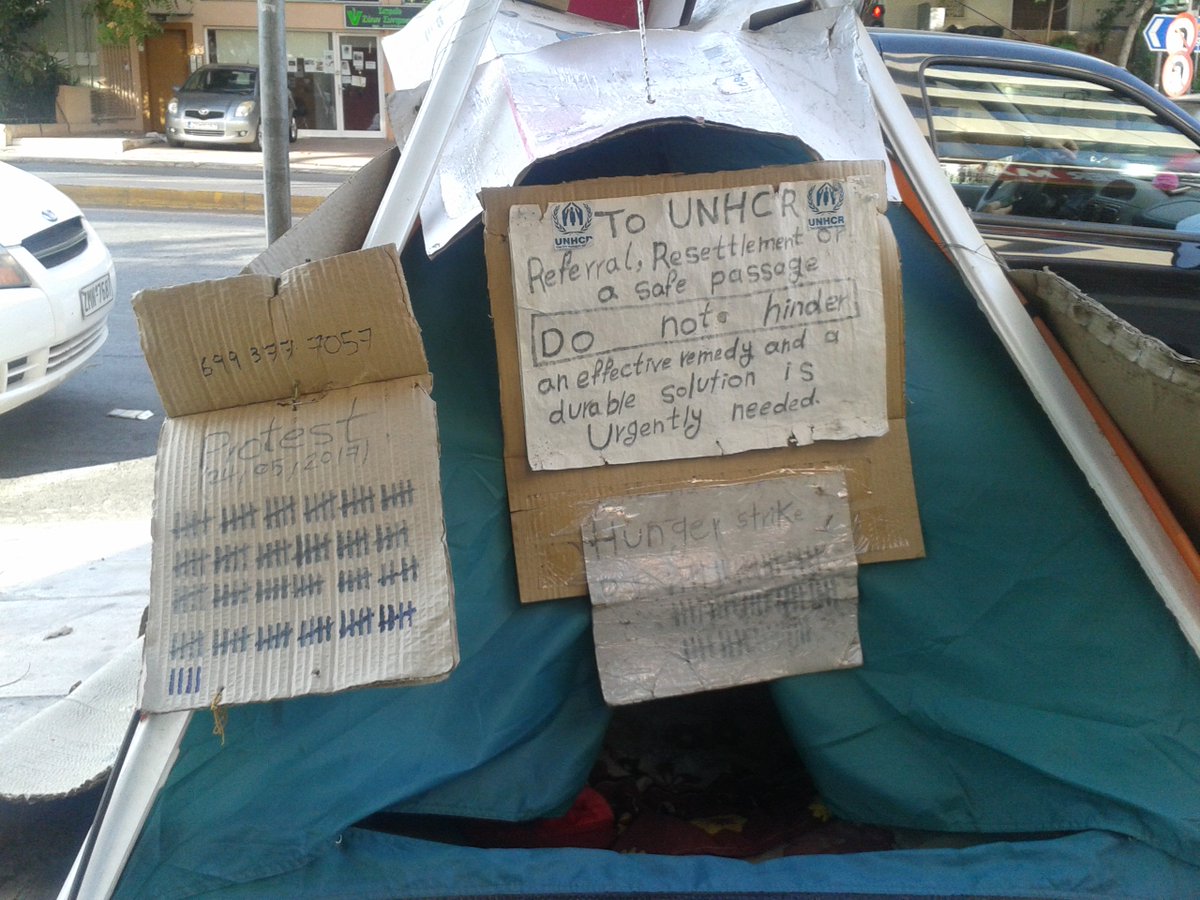 UNHCR
UNHCR
To UNHCR
Referral, Resettlement or
a safe passage
Do not hinder
an effective remedy and a
durable solution is
Urgently needed.
699 377 7057
Protest
24/05/2017
Hunger strike